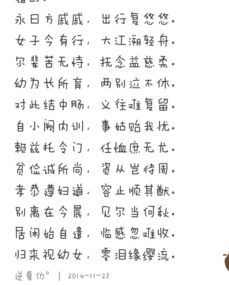 永日方戚戚，出行复悠悠。
女子今有行，大江溯轻舟。
尔辈苦无恃，抚念益慈柔。
幼为长所育，两别泣不休。
对此结中肠，义往难复留。
自小阙内训，事姑贻我忧。
赖兹托令门，任恤庶无尤。
贫俭诚所尚，资从岂待周。
孝恭遵妇道，容止顺其猷。
别离在今晨，见尔当何秋。
居闲始自遣，临感忽难收。
归来视幼女，零泪缘缨流。
2014-11-23